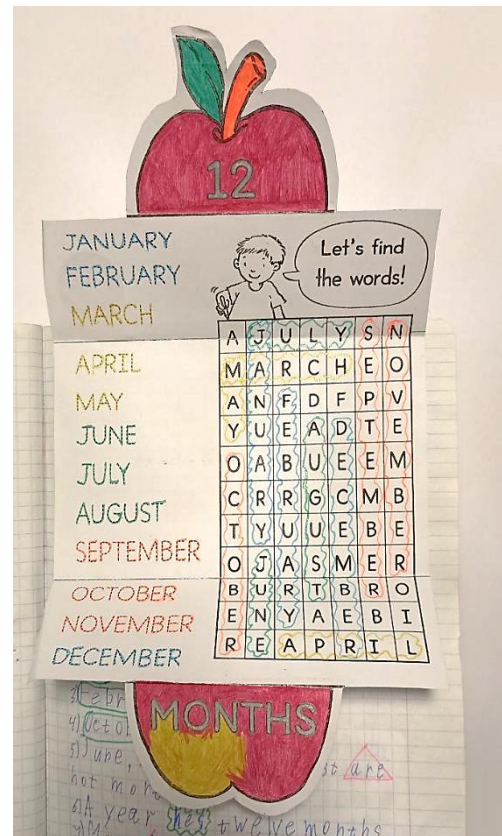 12
Let's find
the words!
JANUARY
FEBRUARY
MARCH
APRIL
MAY
JUNE
JULY
AUGUST
SEPTEMBER
OCTOBER
NOVEMBER
DECEMBER
A J U L Y S N
M A R C H E O
A N F D F P V
Y U E A D T E
O A B U E E M
C R R G C M B
T Y U U E B E
O J A S M E R
B U R T B R O
E N Y A E B I
R E A P R I L
MONTHS
3) Febr
4) Octo
5) June, st are
hot mon
6) A year has twelve months